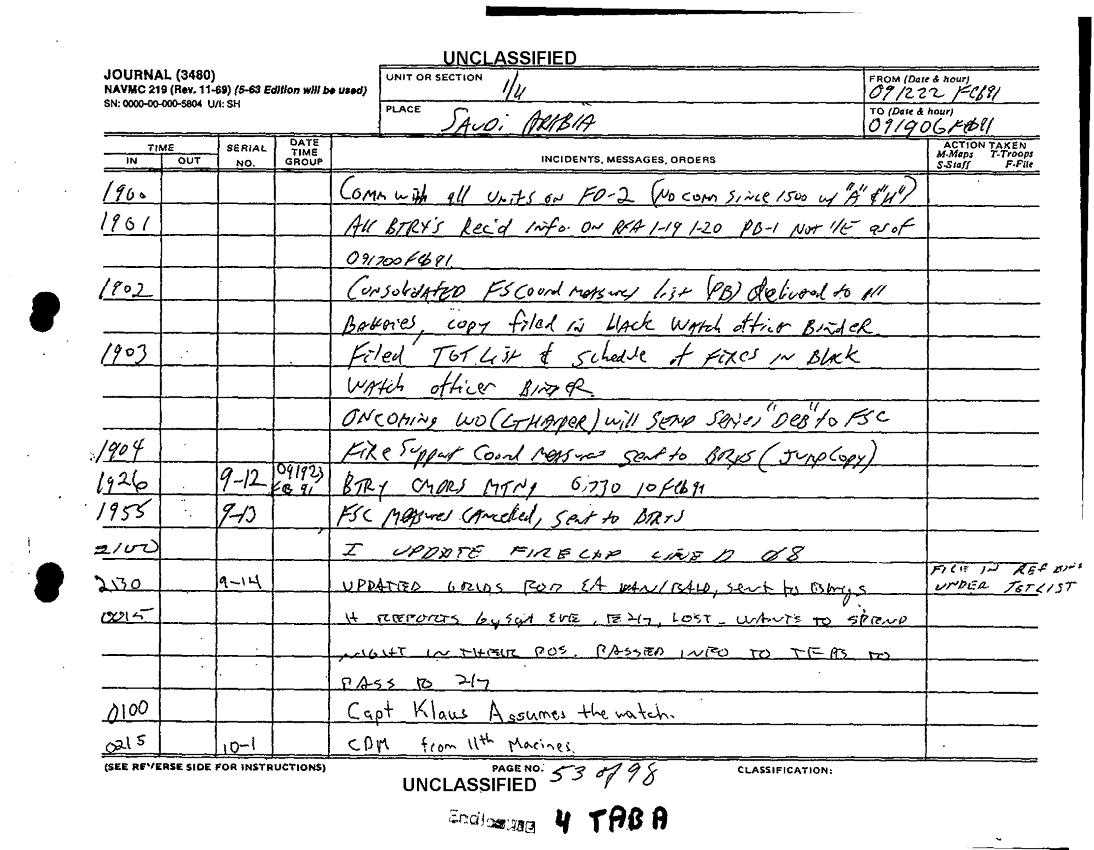 UNCLASSIFIED
JOURNAL (3480)
NAVMC 219 (Rev. 11-69) (5-63 Edition will be used)
SN: 0000-00-000-5804 U/I: SH
UNIT OR SECTION
1/4
FROM (Date & hour)
091222 Feb 91
PLACE
SAUDI ARABIA
TO (Date & hour)
091906 Feb 91
TIME
IN OUT
SERIAL NO.
DATE TIME GROUP
INCIDENTS, MESSAGES, ORDERS
ACTION TAKEN
M-Maps T-Troops
S-Staff F-File
1900 Comm with all units on FD-2 (No comm since 1500 w/ "A" & "H")
1901 All BTRY's Rec'd info. on RFA 1-19 1-20 PB-1 Not I/E as of
091700 Feb 91.
1902 Consolidated FSCoord measures list (PB) delivered to all
Batteries, copy filed in black watch officer Binder.
1903 Filed TGT List & schedule of FIRES IN Black
Watch officer BINDER.
ONCOMING WO (LT Harper) will SEND series "DEB" to FSC
1904 Fire Support Coord measures sent to BTRYS (Jump Copy)
1926 9-12 091923 FEB 91 BTRY CMDRS MTNG 0730 10 Feb 91
1955 9-13 FSC Measures Cancelled, sent to BTRYS
2100 I UPDATE FIRECAP LINE D 08
2130 9-14 UPDATED GRIDS FOR EA sent to Btrys
FILE IN REF BIND
UNDER TGT LIST
0015 H REPORTS by Sgt 2/7, LOST - WANTS TO SPEND
NIGHT IN THEIR POS. PASSED INFO TO TO
PASS TO 2/7
0100 Capt Klaus Assumes the watch.
0215 10-1 from 11th Marines.
(SEE REVERSE SIDE FOR INSTRUCTIONS)
PAGE NO: 53 of 98
CLASSIFICATION:
UNCLASSIFIED
Enclosure 4 TAB A